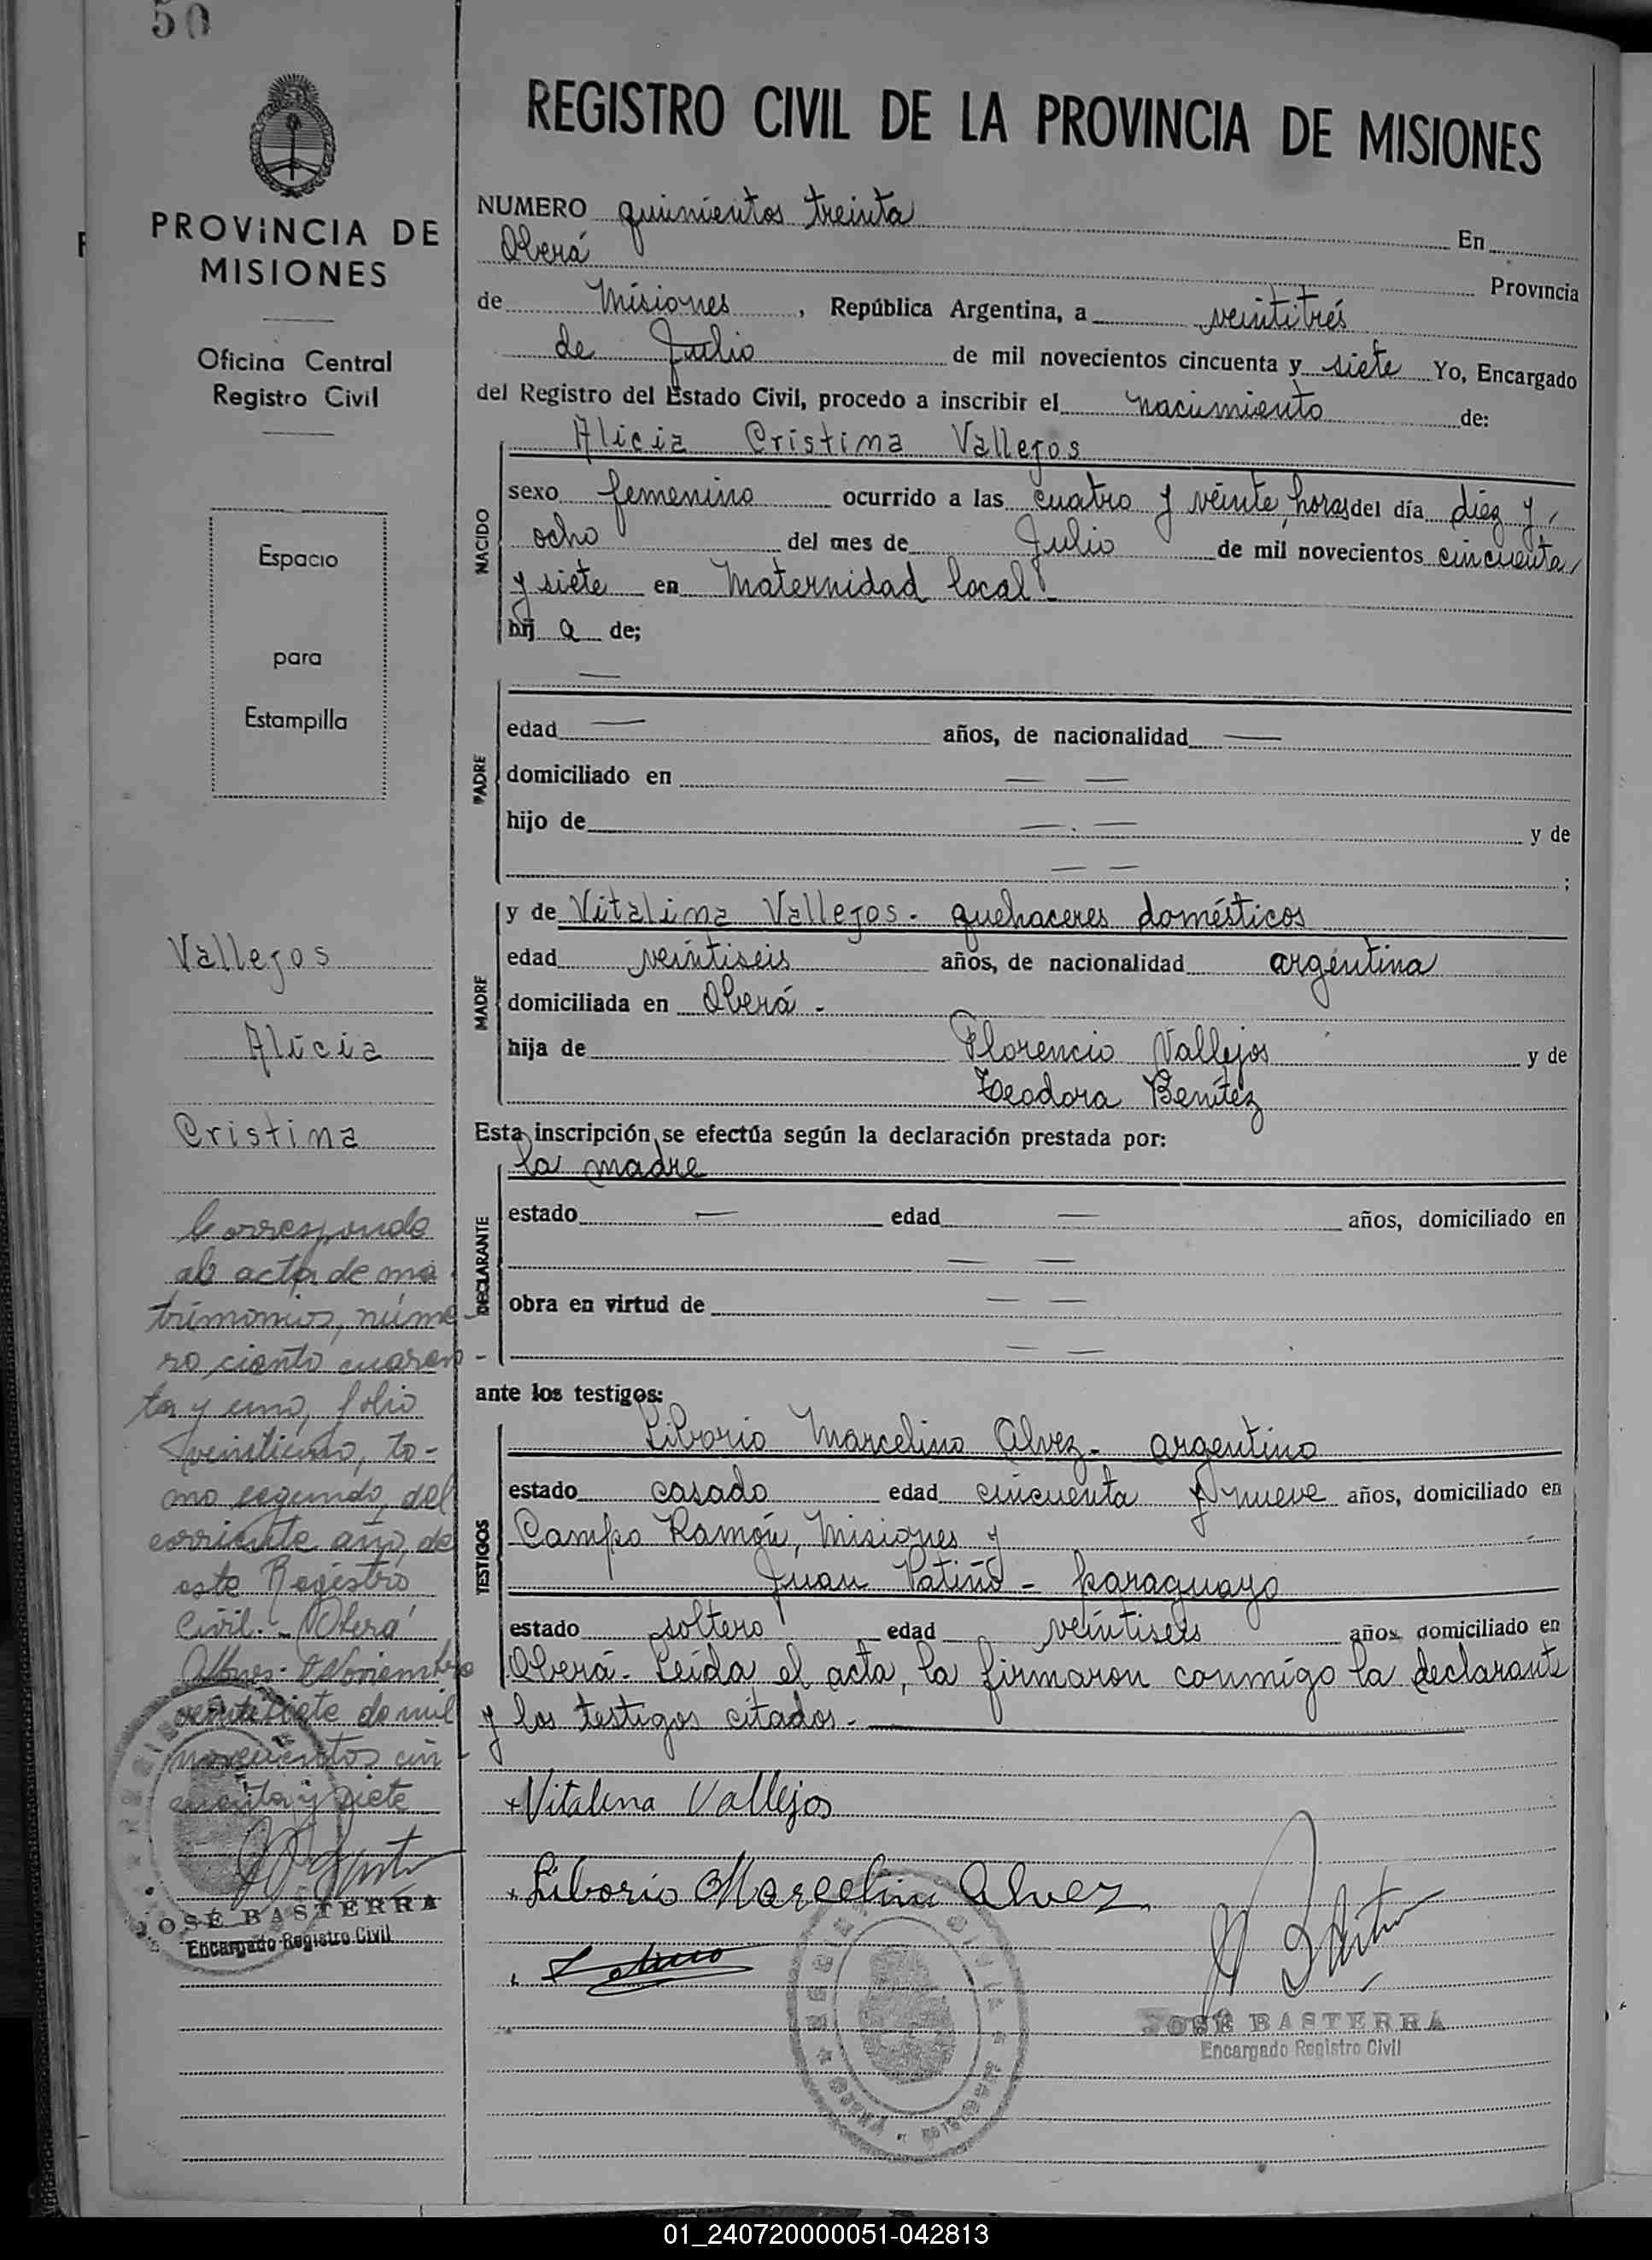 50
PROVINCIA DE
MISIONES
Oficina Central
Registro Civil
Espacio
para
Estampilla
Vallejos
Alicia
Cristina
Corresponde
al acta de ma
trimonios, núme-
ro ciento cuaren-
ta y uno, folio
veintiuno, to-
mo segundo, del
corriente año, de
este Registro
Civil.- Oberá
Mnes.- Noviembre
veintisiete de mil
novecientos cin-
cuenta y siete
JOSÉ BASTERRA
Encargado Registro Civil
REGISTRO CIVIL DE LA PROVINCIA DE MISIONES
NUMERO quinientos treinta En
Oberá Provincia
de Misiones, República Argentina, a veintitrés
de Julio de mil novecientos cincuenta y siete Yo, Encargado
del Registro del Estado Civil, procedo a inscribir el nacimiento de:
Alicia Cristina Vallejos
NACIDO
sexo femenino ocurrido a las cuatro y veinte horas del día diez y
ocho del mes de Julio de mil novecientos cincuenta
y siete en Maternidad local.-
hij a de;
—
PADRE
edad — años, de nacionalidad —
domiciliado en — —
hijo de — . — y de
— — ;
MADRE
y de Vitalina Vallejos.- quehaceres domésticos
edad veintiseis años, de nacionalidad argentina
domiciliada en Oberá.-
hija de Florencio Vallejos y de
Teodora Benítez
Esta inscripción se efectúa según la declaración prestada por:
la madre
DECLARANTE
estado — edad — años, domiciliado en
— —
obra en virtud de — —
— —
ante los testigos:
TESTIGOS
Liborio Marcelino Alvez.- argentino
estado casado edad cincuenta y nueve años, domiciliado en
Campo Ramón, Misiones y
Juan Patiño - paraguayo
estado soltero edad veintiseis años domiciliado en
Oberá.- Leída el acta, la firmaron conmigo la declarante
y los testigos citados.-
+Vitalina Vallejos
+Liborio Marcelino Alvez
JOSÉ BASTERRA
Encargado Registro Civil
01_240720000051-042813